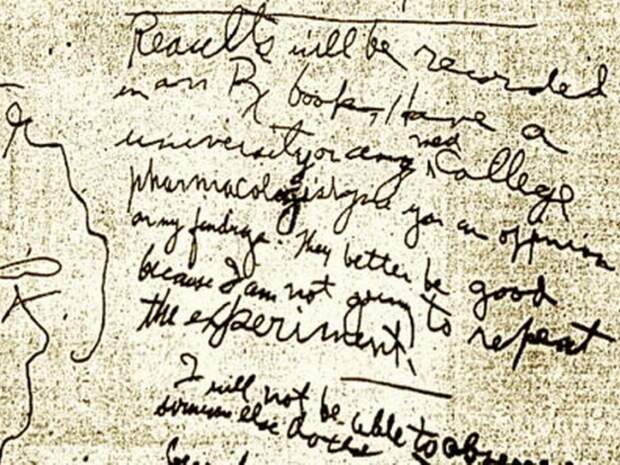 Results will be recorded
in an Rx book, Have a
university or any med College
pharmacologist give you an opinion
on my findings. They better be good
because I am not going to repeat
the experiment.
I will not be able to observe
someone else